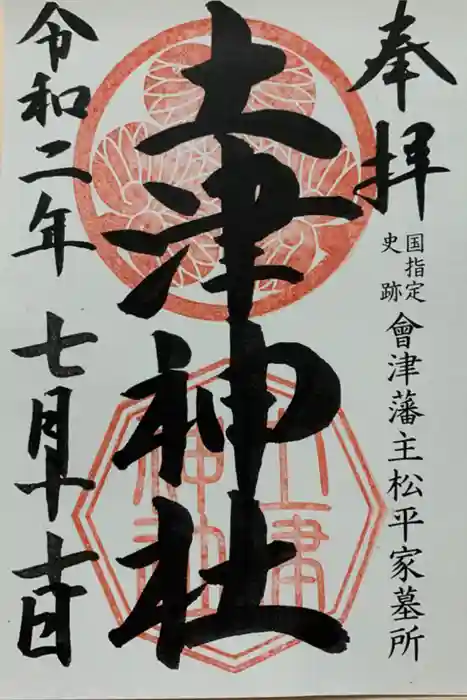 奉拝
国指定
史跡
會津藩主松平家墓所
土津神社
土津
神社
令和二年七月十七日